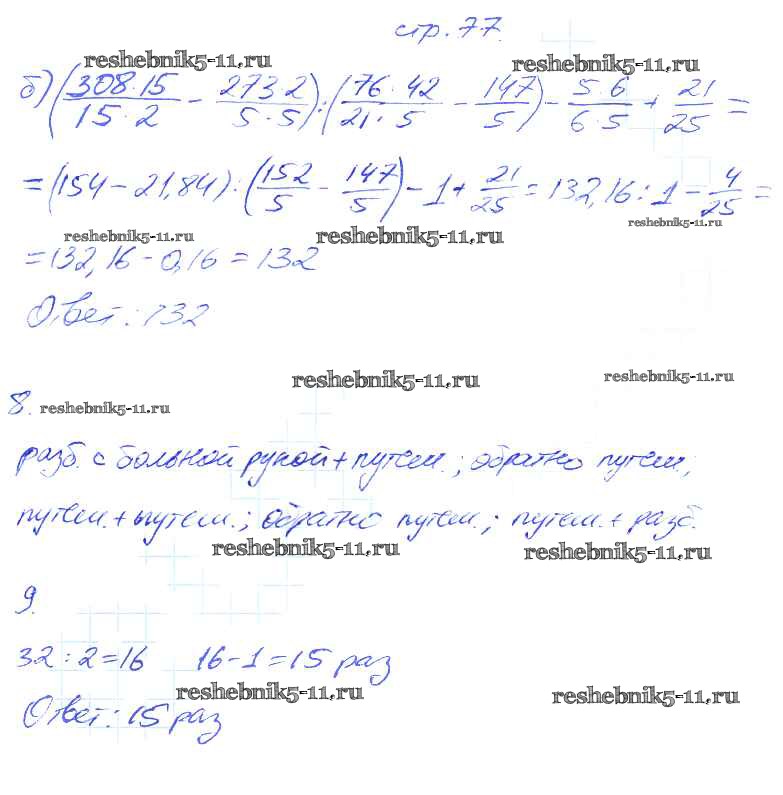 стр. 77.
reshebnik5-11.ru reshebnik5-11.ru
б) (308·15/15·2 - 273·2/5·5) : (76·42/21·5 - 147/5) - 5·6/6·5 + 21/25 =
= (154 - 21,84) : (152/5 - 147/5) - 1 + 21/25 = 132,16 : 1 - 4/25 =
reshebnik5-11.ru reshebnik5-11.ru reshebnik5-11.ru
= 132,16 - 0,16 = 132
Ответ: 132
reshebnik5-11.ru reshebnik5-11.ru
8. reshebnik5-11.ru
разб. с больной рукой + путеш.; обратно путеш;
путеш. + путеш.; обратно путеш.; путеш. + разб.
reshebnik5-11.ru reshebnik5-11.ru
9.
32 : 2 = 16 16 - 1 = 15 раз
reshebnik5-11.ru reshebnik5-11.ru
Ответ: 15 раз